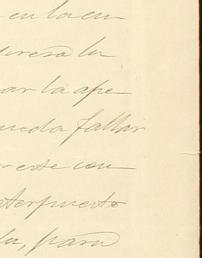 en la en
presa la
ar la ape
ueda fallar
este con
nterpuesto
la, para